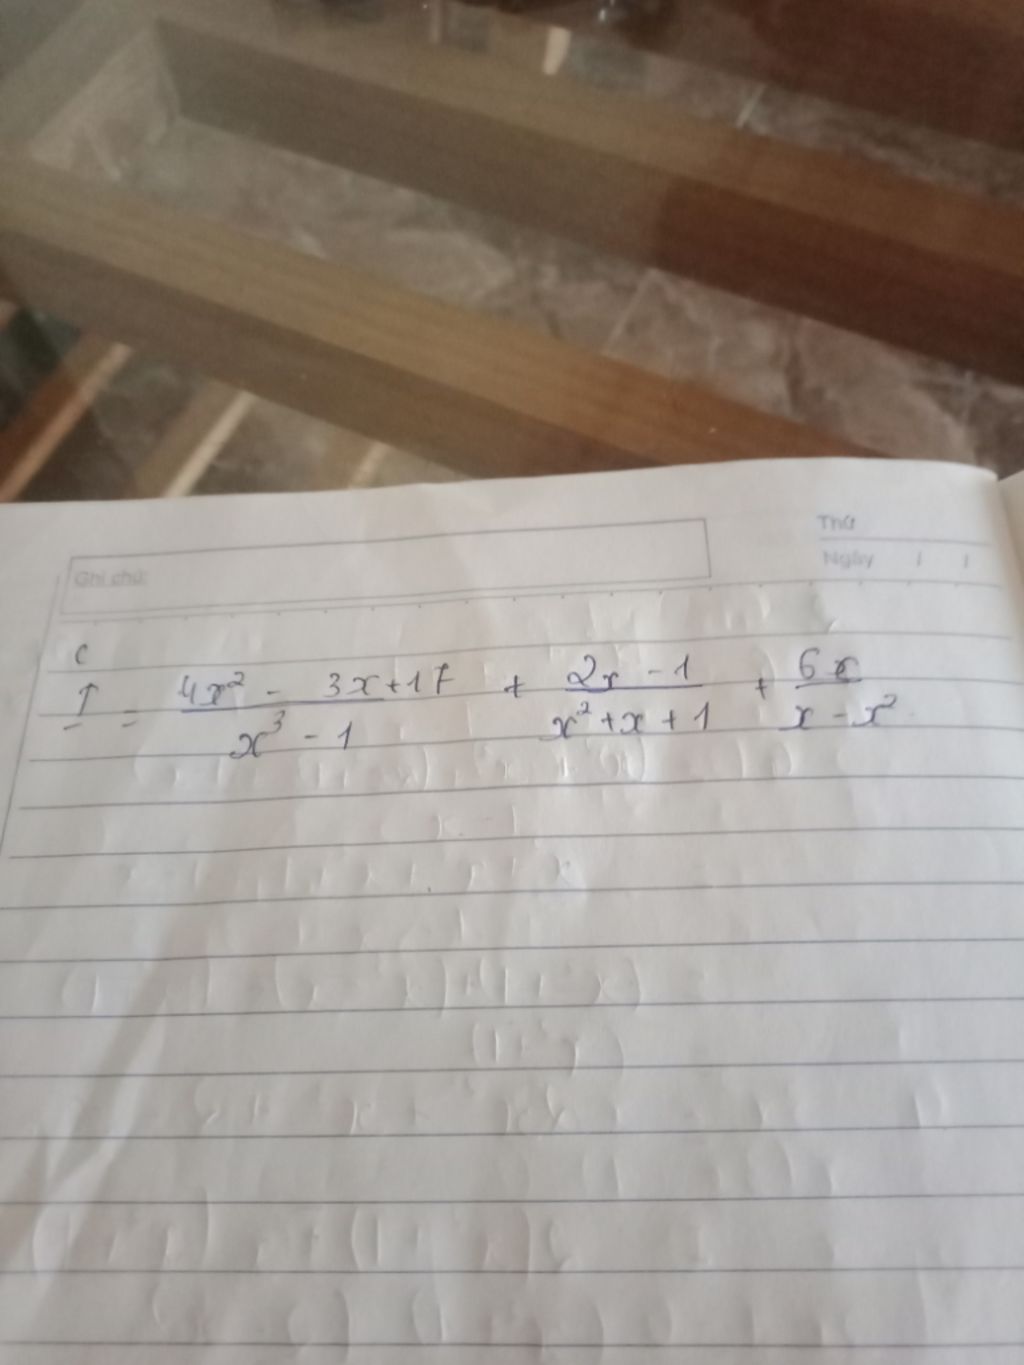 Ghi chú:
Thứ
Ngày / /
c
P = \frac{4x^2 - 3x + 17}{x^3 - 1} + \frac{2x - 1}{x^2 + x + 1} + \frac{6x}{x - x^2}